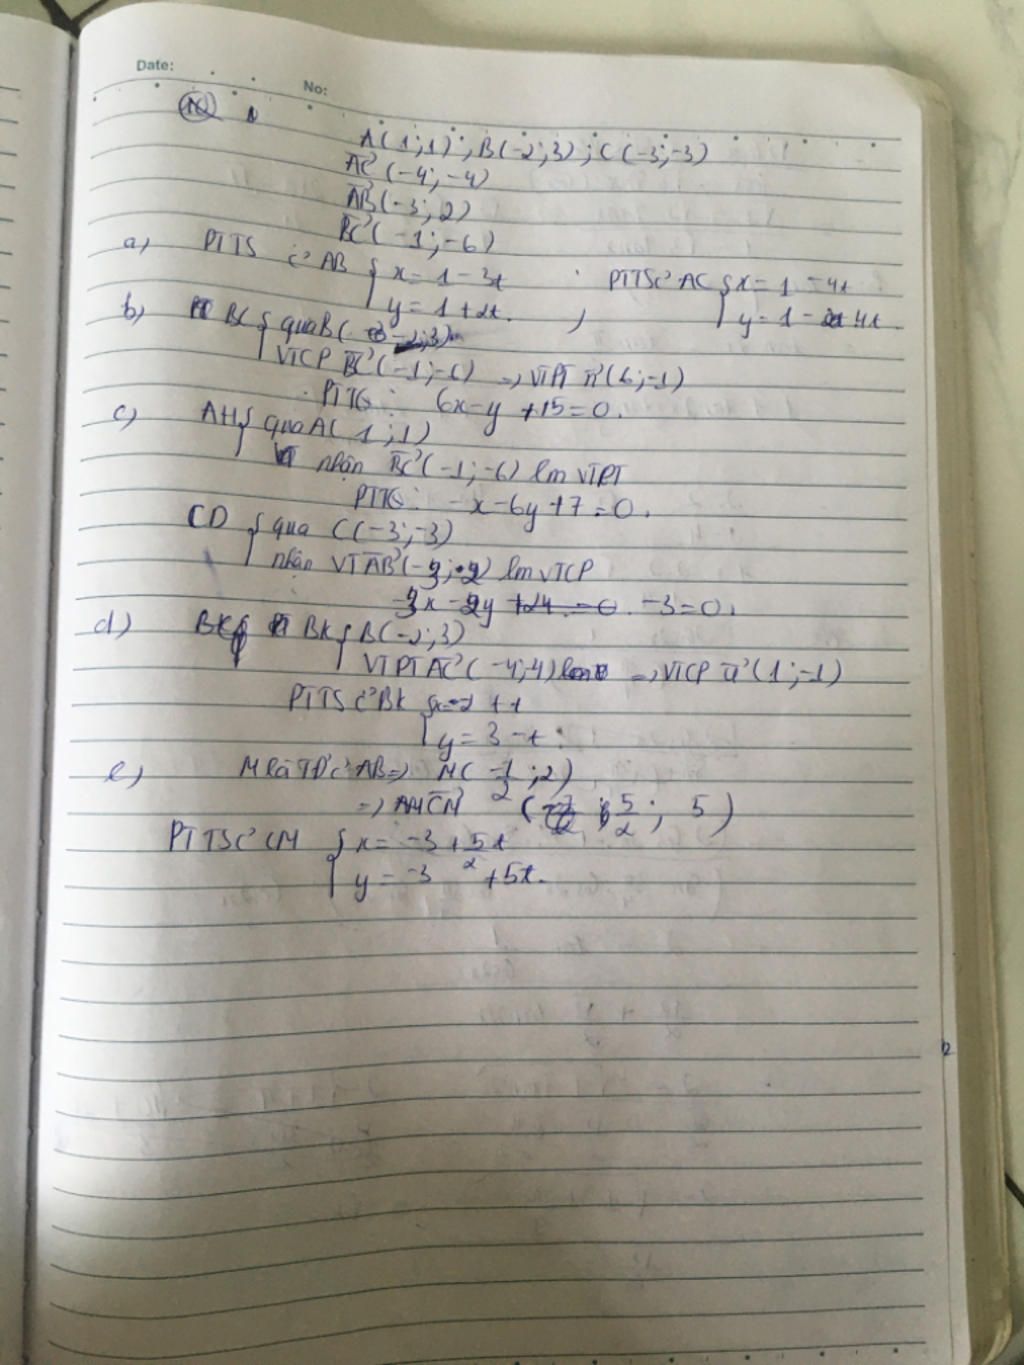 Date:
No:
A(1;1); B(-2;3); C(-3;-3)
AC(-4;-4)
AB(-3;2)
BC(-1;-6)
a) PTTS c² AB { x = 1 - 3t , PTTS c² AC { x = 1 - 4t
y = 1 + 2t. y = 1 - 4t.
b) BC { qua B(-2;3)
VTCP BC(-1;-6) => VTPT n(6;-1)
PTTQ: 6x-y+15=0.
c) AH { qua A(1;1)
nhận BC(-1;-6) làm VTPT
PTTQ: -x-6y+7=0.
CD { qua C(-3;-3)
nhận VT AB(-3;2) làm VTCP
-3x-2y -3=0.
d) BK { B(-2;3)
VTPT AC(-4;4) => VTCP u(1;-1)
PTTS c² BK { x=-2+t
y = 3-t.
e) M là TĐ c² AB => M(-1/2;2)
=> CM (5/2; 5)
PTTS c² CM { x = -3 + 5/2 t
y = -3 + 5t.